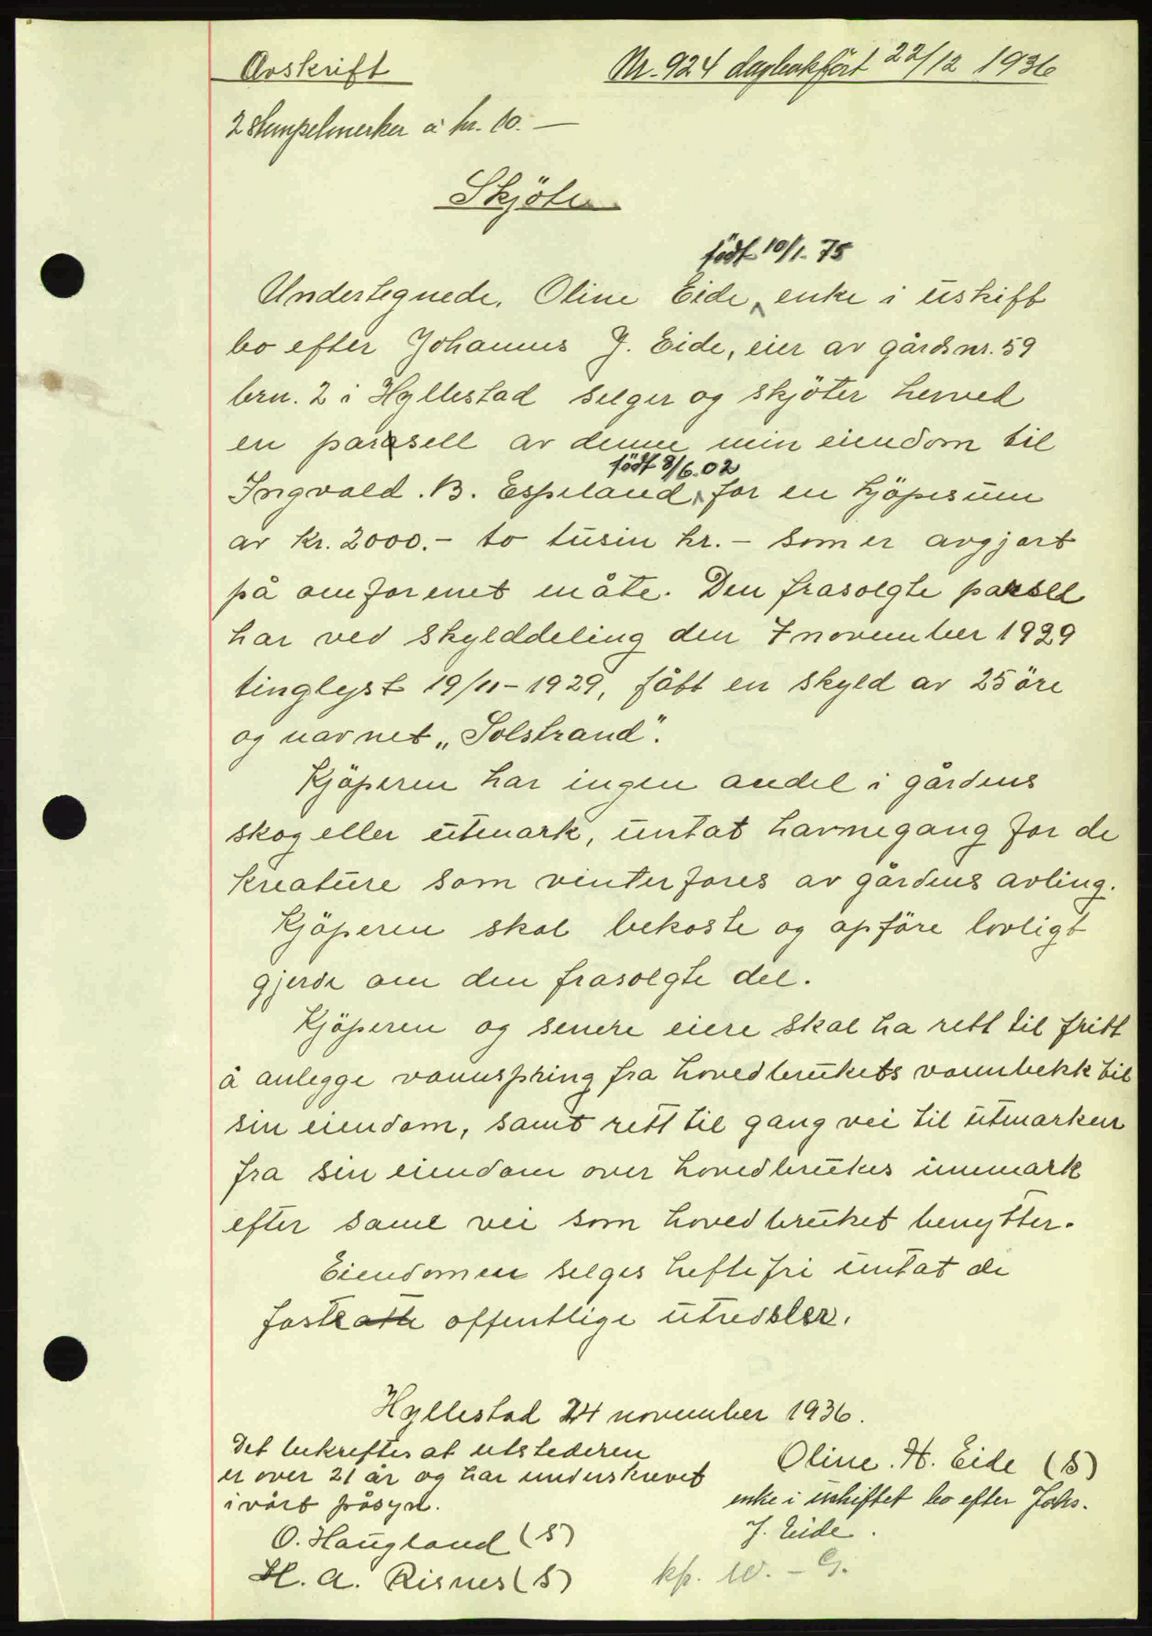 Avskrift
Nr. 924 dagbokfört 22/12 1936
2 stempelmerker à kr. 10.—
Skjöte
född 10/1-75
Undertegnede, Oline Eide, enke i uskift
bo efter Johannes J. Eide, eier av gårdsnr. 59
brn. 2 i Hyllestad selger og skjöter herved
en parsell av denne min eiendom til
født 8/6.02
Ingvald. B. Espeland, for en kjöpesum
av kr. 2000.- to tusin kr. - som er avgjort
på omforenet måte. Den frasolgte parsell
har ved skylddeling den 7 november 1929
tinglyst 19/11-1929, fått en skyld av 25 öre
og navnet „Solstrand".
Kjöperen har ingen andel i gårdens
skog eller utmark, untat havnegang for de
kreature som vinterfores av gårdens avling.
Kjöperen skal bekoste og opföre lovligt
gjerde om den frasolgte del.
Kjöperen og senere eiere skal ha rett til fritt
å anlegge vannspring fra hovedbrukets vannbekk til
sin eiendom, samt rett til gang vei til utmarken
fra sin eiendom over hovedbrukes innmark
efter same vei som hovedbruket benytter.
Eiendomen selges heftefri untat de
faste offentlige utredsler.
Hyllestad 24 november 1936.
Det bekreftes at utstederen
er over 21 år og har underskrevet
i vårt påsyn.
O. Haugland (S)
H. A. Risnes (S)
Oline. H. Eide (S)
enke i uskiftet bo efter Johs.
J. Eide.
kp. 10. - G.